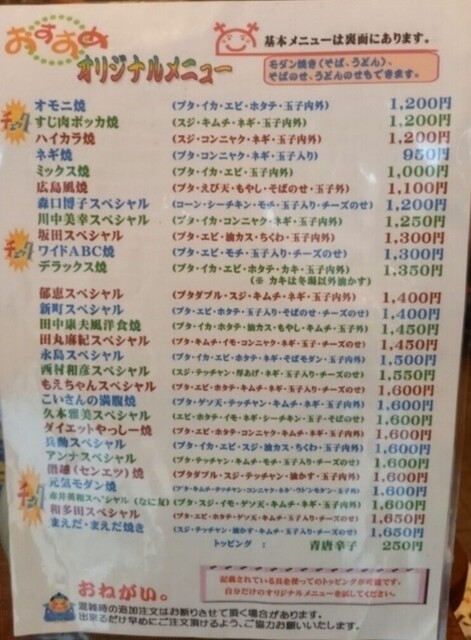 おすすめ
オリジナルメニュー
基本メニューは裏面にあります。
モダン焼き(そば、うどん)、
そばのせ、うどんのせもできます。
チェック
オモニ焼 (ブタ・イカ・エビ・ホタテ・玉子内外) 1,200円
すじ肉ポッカ焼 (スジ・キムチ・ネギ・玉子内外) 1,200円
ハイカラ焼 (スジ・コンニャク・ネギ・玉子内外) 1,200円
ネギ焼 (ブタ・コンニャク・ネギ・玉子入り) 950円
ミックス焼 (ブタ・イカ・エビ・玉子内外) 1,000円
広島風焼 (ブタ・えび天・もやし・そばのせ・玉子外) 1,100円
森口博子スペシャル (コーン・シーチキン・モチ・玉子入り・チーズのせ) 1,200円
川中美幸スペシャル (ブタ・イカ・コンニャク・ネギ・玉子内外) 1,250円
坂田スペシャル (ブタ・エビ・油カス・ちくわ・玉子内外) 1,300円
チェック
ワイドABC焼 (ブタ・エビ・モチ・玉子入り・チーズのせ) 1,300円
デラックス焼 (ブタ・イカ・エビ・ホタテ・カキ・玉子内外) 1,350円
(※ カキは冬場以外油かす)
郁恵スペシャル (ブタダブル・スジ・キムチ・ネギ・玉子内外) 1,400円
新町スペシャル (ブタ・エビ・ホタテ・玉子入り・そばのせ・チーズのせ) 1,400円
田中康夫風洋食焼 (ブタ・イカ・ホタテ・油カス・もやし・キムチ・玉子外) 1,450円
田丸麻紀スペシャル (ブタ・キムチ・イモ・コンニャク・ネギ・玉子・チーズのせ) 1,450円
永島スペシャル (ブタ・イカ・エビ・ホタテ・ネギ・そばモダン・玉子内外) 1,500円
西村和彦スペシャル (スジ・テッチャン・厚あげ・ネギ・玉子入り・チーズのせ) 1,550円
もえちゃんスペシャル (ブタ・エビ・ホタテ・キムチ・ネギ・玉子入り・チーズのせ) 1,600円
こいさんの満腹焼 (ブタ・ゲソ天・テッチャン・キムチ・ホタテ・玉子内外) 1,600円
久本雅美スペシャル (エビ・ホタテ・イモ・ネギ・シーチキン・玉子・そばのせ) 1,600円
ダイエットやっしー焼 (ブタ・エビ・ホタテ・コンニャク・キムチ・ネギ・玉子内外) 1,600円
兵動スペシャル (ブタ・イカ・エビ・スジ・油カス・ちくわ・玉子内外) 1,600円
アンナスペシャル (ブタ・テッチャン・キムチ・モチ・玉子入り・チーズのせ) 1,600円
(センエツ)焼 (ブタダブル・スジ・テッチャン・油かす・玉子内外) 1,600円
チェック
元気モダン焼 (ブタ・キムチ・テッチャン・コンニャク・ネギ・ウドンモダン・玉子外) 1,600円
赤井英和スペシャル(なに友) (ブタ・スジ・イモ・ゲソ天・キムチ・ネギ・玉子内外) 1,600円
和多田スペシャル (ブタ・エビ・ホタテ・ゲソ天・キムチ・玉子入り・チーズのせ) 1,650円
まえだ・まえだ焼き (スジ・テッチャン・油かす・キムチ・玉子入り・チーズのせ) 1,650円
トッピング : 青唐辛子 250円
記載されている具を使ってのトッピングが可能です。
自分だけのオリジナルメニューを試してください。
おねがい。
混雑時の追加注文はお断りさせて頂く場合があります。
出来るだけ早めにご注文頂けるよう、ご協力お願いいたします。